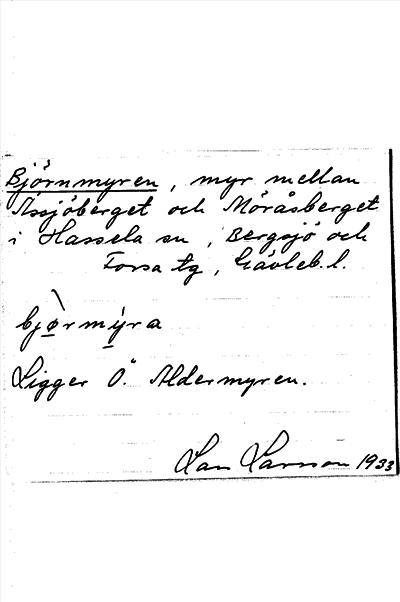 Björnmyren, myr mellan
Assjöberget och Möråsberget
i Hassela sn, Bergsjö och
Forsa tg, Gävleb. l.
bjø̀rmýra
Ligger Ö. Aldermyren.
Lars Larsson 1933